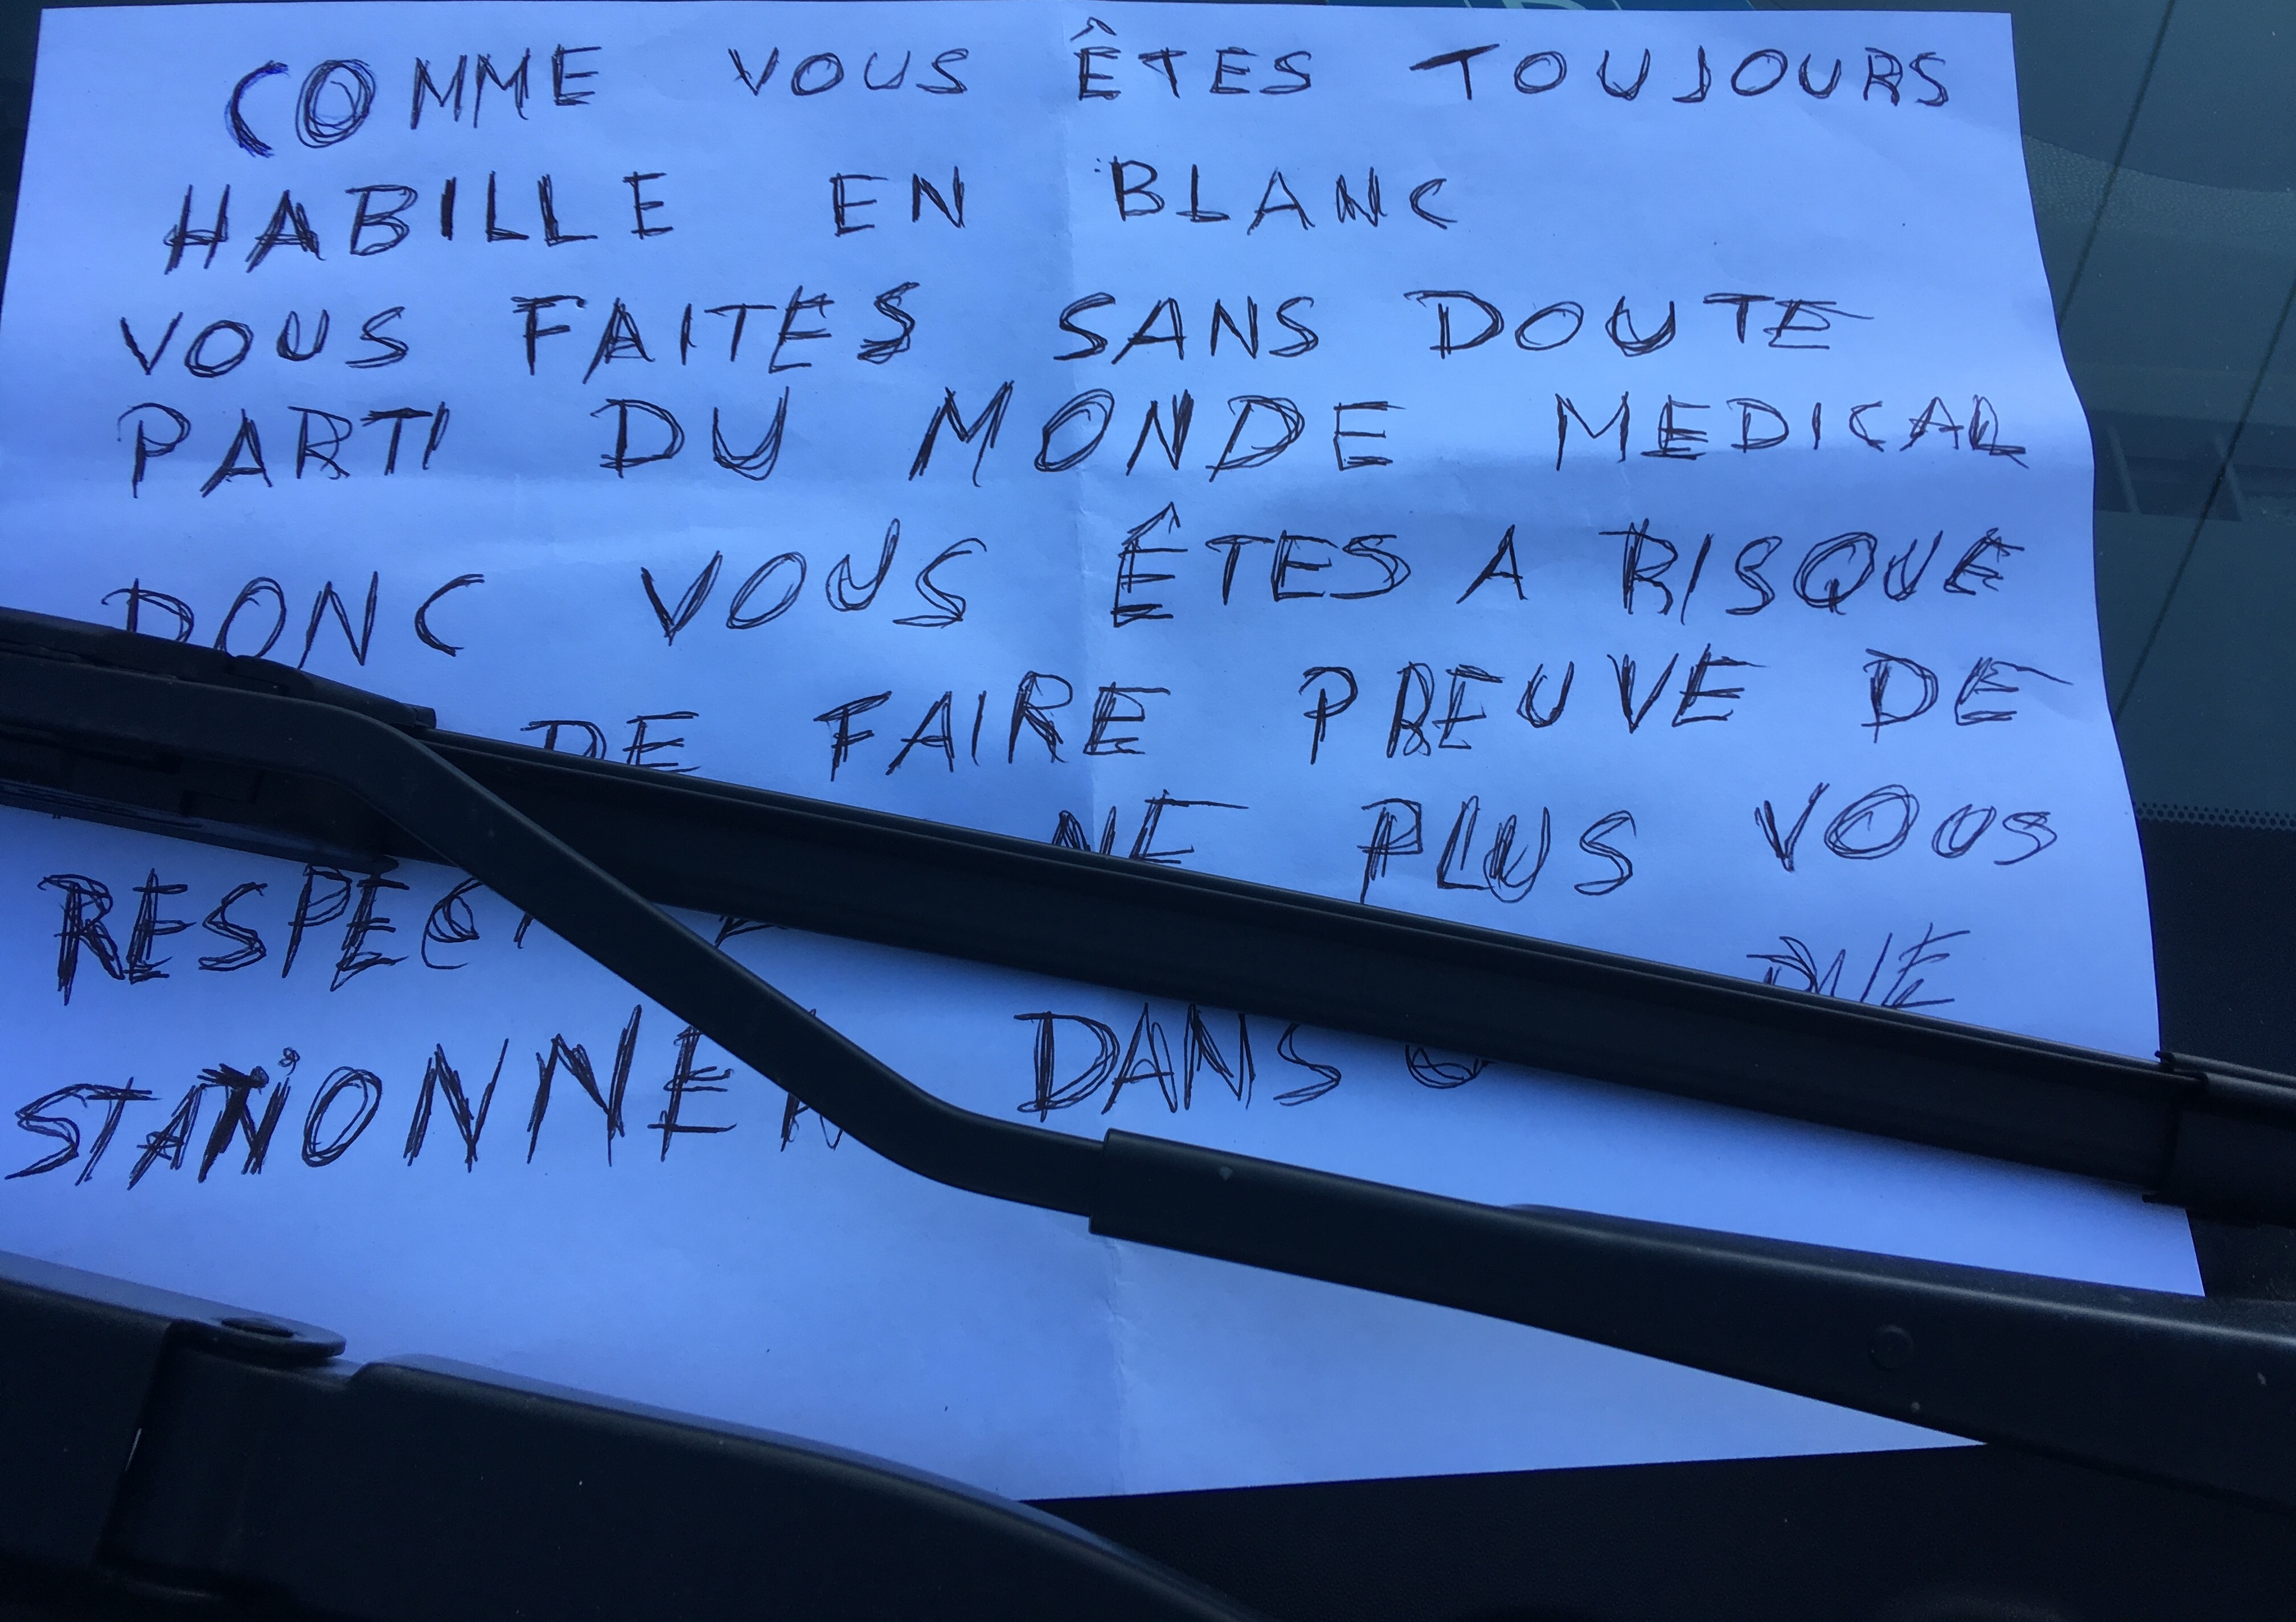 COMME VOUS ÊTES TOUJOURS
HABILLE EN BLANC
VOUS FAITES SANS DOUTE
PARTI DU MONDE MEDICAL
DONC VOUS ÊTES A RISQUE
DE FAIRE PREUVE DE
RESPECT NE PLUS VOUS
STATIONNER DANS RUE